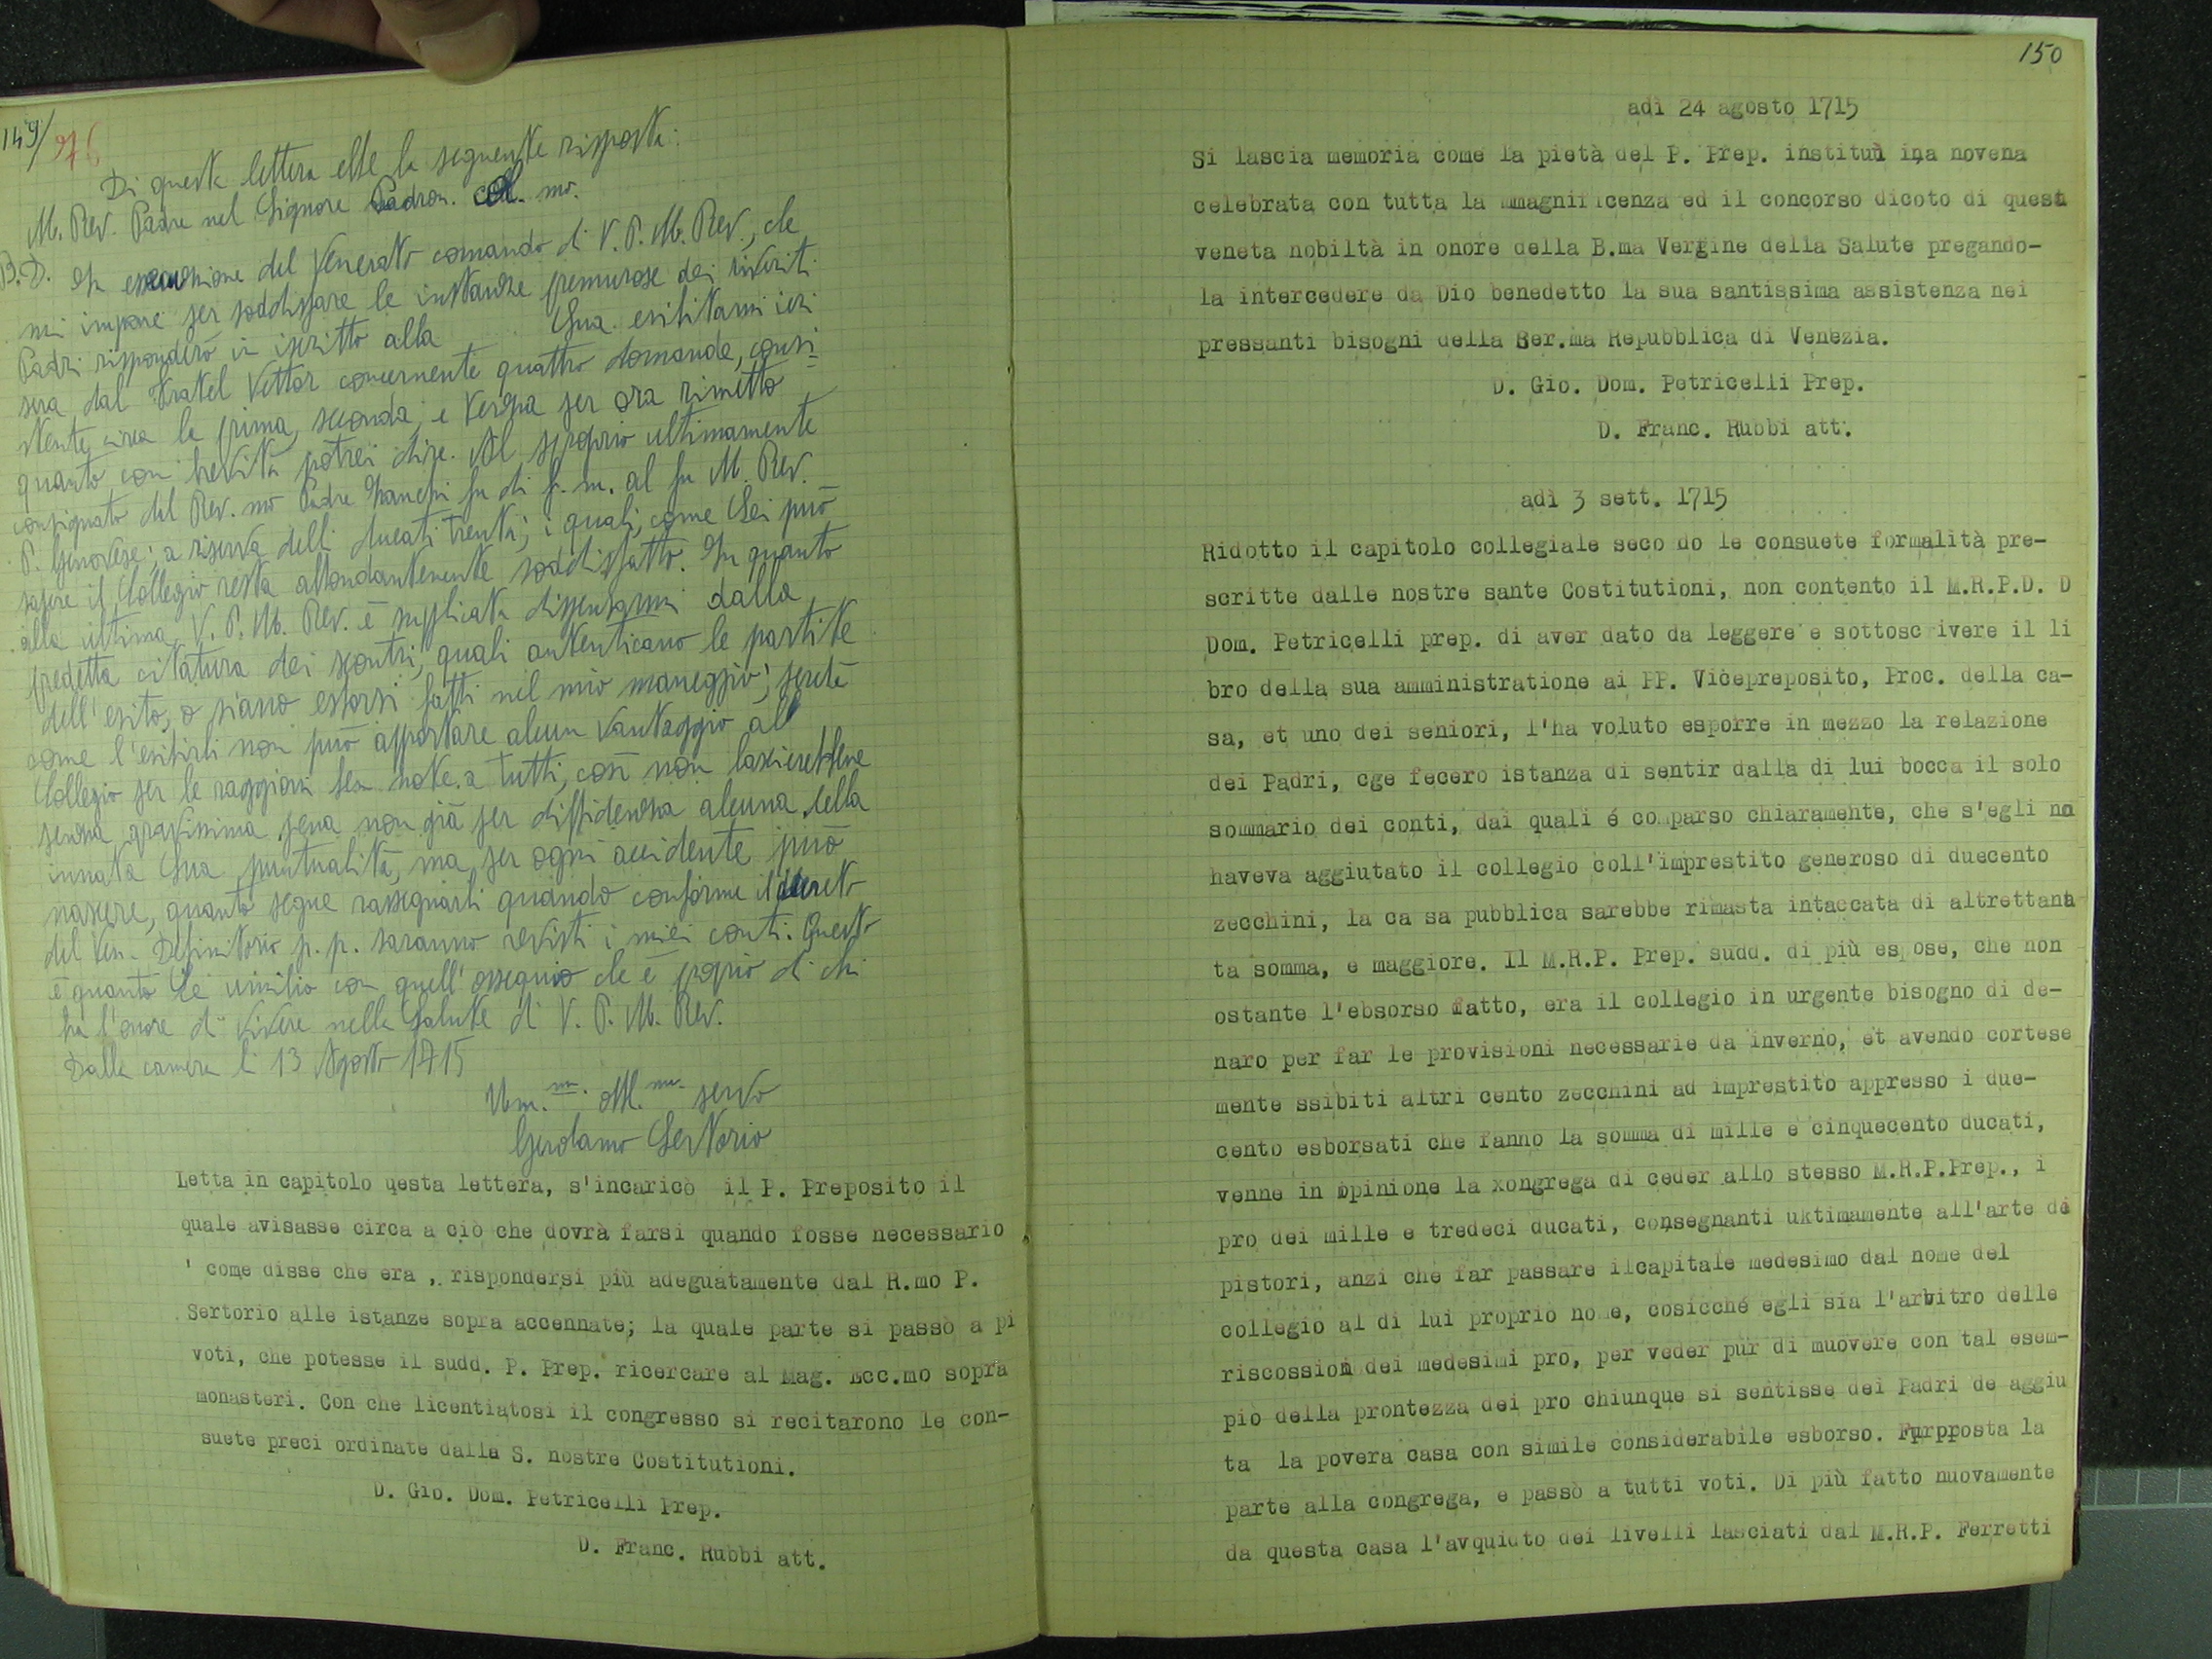 149/ 976
Di questa lettera ebbe la seguente risposta:
M. Rev. Padre nel Signore Padron. Col. mo.
P.D. In esecuzione del venerato comando di V. P. M. Rev., che
mi impone per soddisfare le instanze premurose dei riveriti
Padri risponderò in iscritto alla Sua esibitami ieri
sera dal Fratel Vettor concernente quattro domande, consi-
stente circa la prima, seconda, e terza per ora rimetto
quanto con brevità potrei dire. Al proprio ultimamente
consignato del Rev. mo Padre Zanchi fu di f. m. al fu M. Rev.
P. Genovese; a riserva delli ducati trenta; i quali, come Lei può
sapere il Collegio resta abbondantemente soddisfatto. In quanto
alla ultima V. P. M. Rev. è supplicata dispensarmi dalla
predetta citatura dei scontri, quali autenticano le partite
dell'esito, o siano esborsi fatti nel mio maneggio; perchè
come l'esibirli non può apportare alcun vantaggio al
Collegio per le raggioni ben note a tutti, così non lascierebbene
senza gravissima pena non già per diffidenza alcuna della
innata Sua puntualità, ma per ogni accidente può
nascere, quanto segue rassegnarli quando conforme il decreto
del Ven. Definitorio p. p. saranno revisti i miei conti. Questo
è quanto Le umilio con quell'ossequio che è proprio di chi
ha l'onore di vivere nella Salute di V. P. M. Rev.
Dalla camera li 13 Agosto 1715
Um.mo Obl.mo servo
Gerolamo Sertorio
Letta in capitolo qesta lettera, s'incaricò il P. Preposito il
quale avisasse circa a ciò che dovrà farsi quando fosse necessario
' come disse che era ,. rispondersi più adeguatamente dal R.mo P.
Sertorio alle istanze sopra accennate; la quale parte si passò a pi
voti, che potesse il sudd. P. Prep. ricercare al Mag. Ecc.mo sopra
monasteri. Con che licentiatosi il congresso si recitarono le con-
suete preci ordinate dalle S. nostre Costitutioni.
D. Gio. Dom. Petricelli Prep.
D. Franc. Rubbi att.
150
adì 24 agosto 1715
Si lascia memoria come la pietà del P. Prep. instituì ina novena
celebrata con tutta la mmagnificenza ed il concorso dicoto di quest
veneta nobiltà in onore della B.ma Vergine della Salute pregando-
la intercedere da Dio benedetto la sua santissima assistenza nei
pressanti bisogni della Ser.ma Repubblica di Venezia.
D. Gio. Dom. Petricelli Prep.
D. Franc. Rubbi att.
adì 3 sett. 1715
Ridotto il capitolo collegiale seco do le consuete formalità pre-
scritte dalle nostre sante Costitutioni, non contento il M.R.P.D. D
Dom. Petricelli prep. di aver dato da leggere e sottoscrivere il li
bro della sua amministratione ai PP. Vicepreposito, Proc. della ca-
sa, et uno dei seniori, l'ha voluto esporre in mezzo la relazione
dei Padri, cge fecero istanza di sentir dalla di lui bocca il solo
sommario dei conti, dai quali é comparso chiaramente, che s'egli no
haveva aggiutato il collegio coll'imprestito generoso di duecento
zecchini, la ca sa pubblica sarebbe rimasta intaccata di altrettant
ta somma, e maggiore. Il M.R.P. Prep. sudd. di più espose, che non
ostante l'ebsorso fatto, era il collegio in urgente bisogno di de-
naro per far le provisioni necessarie da inverno, et avendo cortese
mente ssibiti altri cento zecchini ad imprestito appresso i due-
cento esborsati che fanno la somma di mille e cinquecento ducati,
venne in opinione la xongrega di ceder allo stesso M.R.P.Prep., i
pro dei mille e tredeci ducati, consegnanti uktimamente all'arte dei
pistori, anzi che far passare ilcapitale medesimo dal nome del
collegio al di lui proprio no e, cosicché egli sia l'arbitro delle
riscossioni dei medesimi pro, per veder pur di muovere con tal esem-
piò della prontezza dei pro chiunque si sentisse dei Padri de aggiu
ta la povera casa con simile considerabile esborso. Furpposta la
parte alla congrega, e passò a tutti voti. Di più fatto nuovamente
da questa casa l'avquidto dei livelli lasciati dal M.R.P. Ferretti